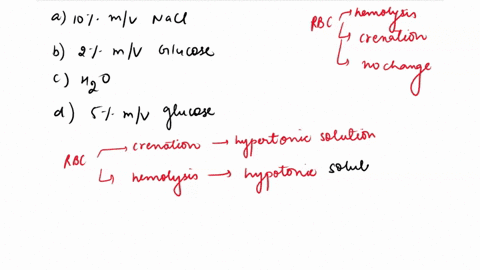 a) 10% m/v NaCl
b) 2% m/v Glucose
c) H2O
d) 5% m/v glucose
RBC → hemolysis
→ crenation
→ no change
RBC → crenation → hypertonic solution
→ hemolysis → hypotonic solut